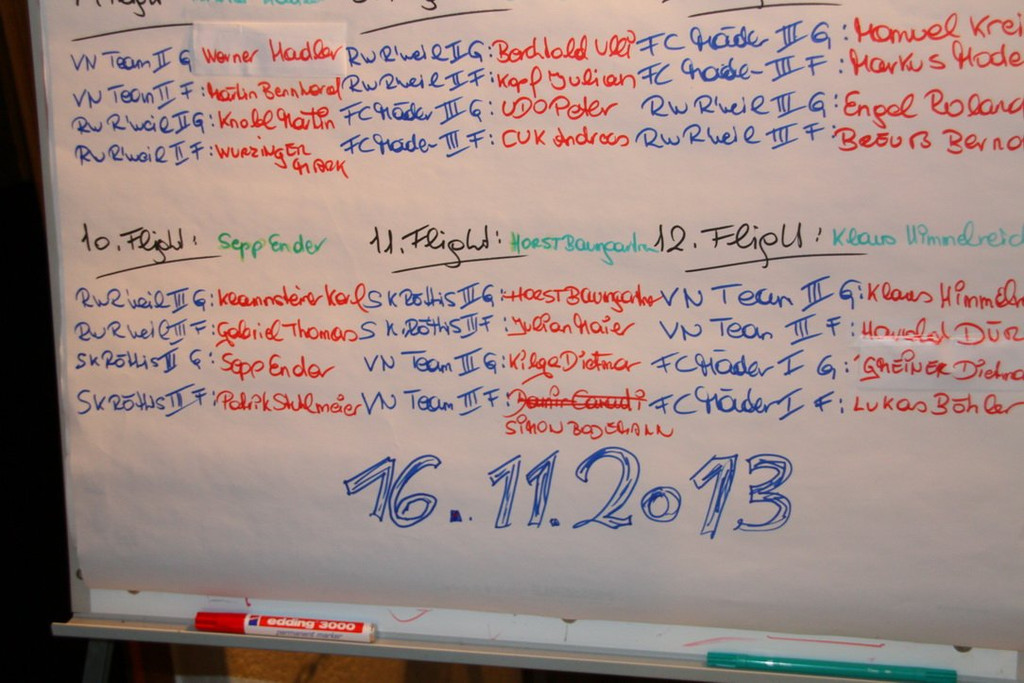 VN Team II G Werner Madlor
VN Team II F: Martin Bernhard
RW R'weil II G: Knobl Martin
RW R'weil II F: WURZINGER
MARK
RW R'weil II G: Berchtold Uli
RW R'weil II F: Kopf Julian
FC Mäder III G: UDO Peter
FC Mäder III F: CUK Andreas
FC Mäder III G: Manuel Krei
FC Mäder III F: Markus Mode
RW R'weil III G: Engel Roland
RW R'weil III F: BREUß Berno
10. Flight: Sepp Ender
RW R'weil III G: Kramsteiner Karl
RW R'weil III F: Gabriel Thomas
SK Röthis II G: Sepp Ender
SK Röthis II F: Patrik Stulmeier
11. Flight: HORST Baumgartner
SK Röthis III G: HORST Baumgartner
SK Röthis III F: Julian Maier
VN Team III G: Kilga Dietmar
VN Team III F:
SIMON BODEMANN
12. Flight: Klaus Himmelreich
VN Team III G: Klaus Himmelr
VN Team III F: Harald DÜR
FC Mäder I G: GHEINER Dietma
FC Mäder I F: LUKAS Böhler
16.11.2013
edding 3000
permanent marker